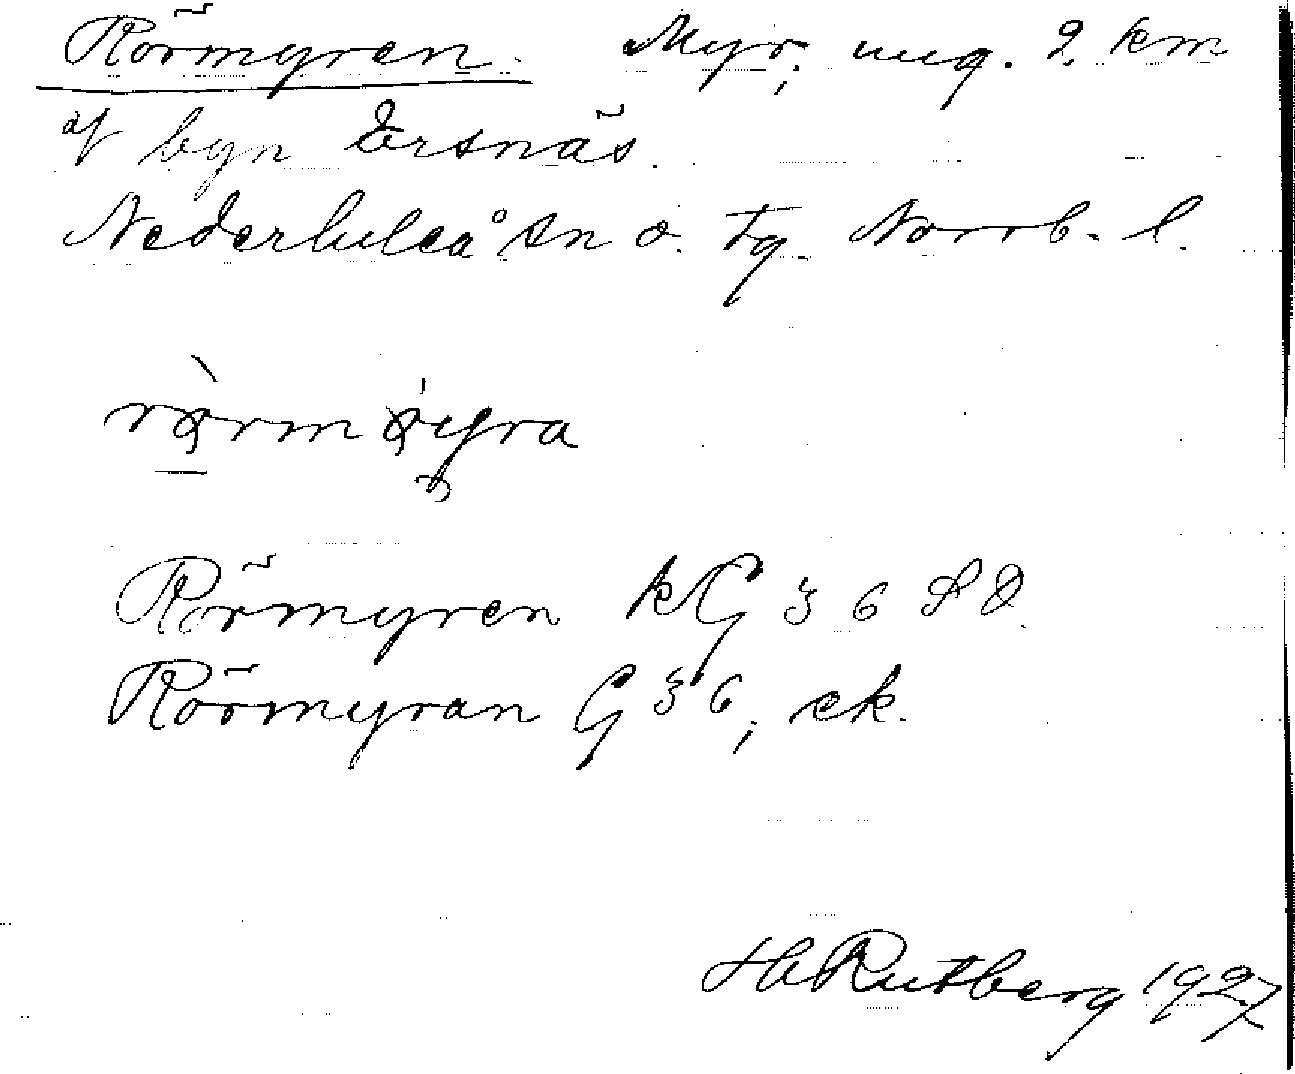 Rörmyren. Myr, ung. 2 km
af byn Ersnäs.
Nederluleå sn o. tg. Norrb. l.
Rörmyren kG 36 SO.
Rörmyran G 36, ek.
H Rutberg 1927